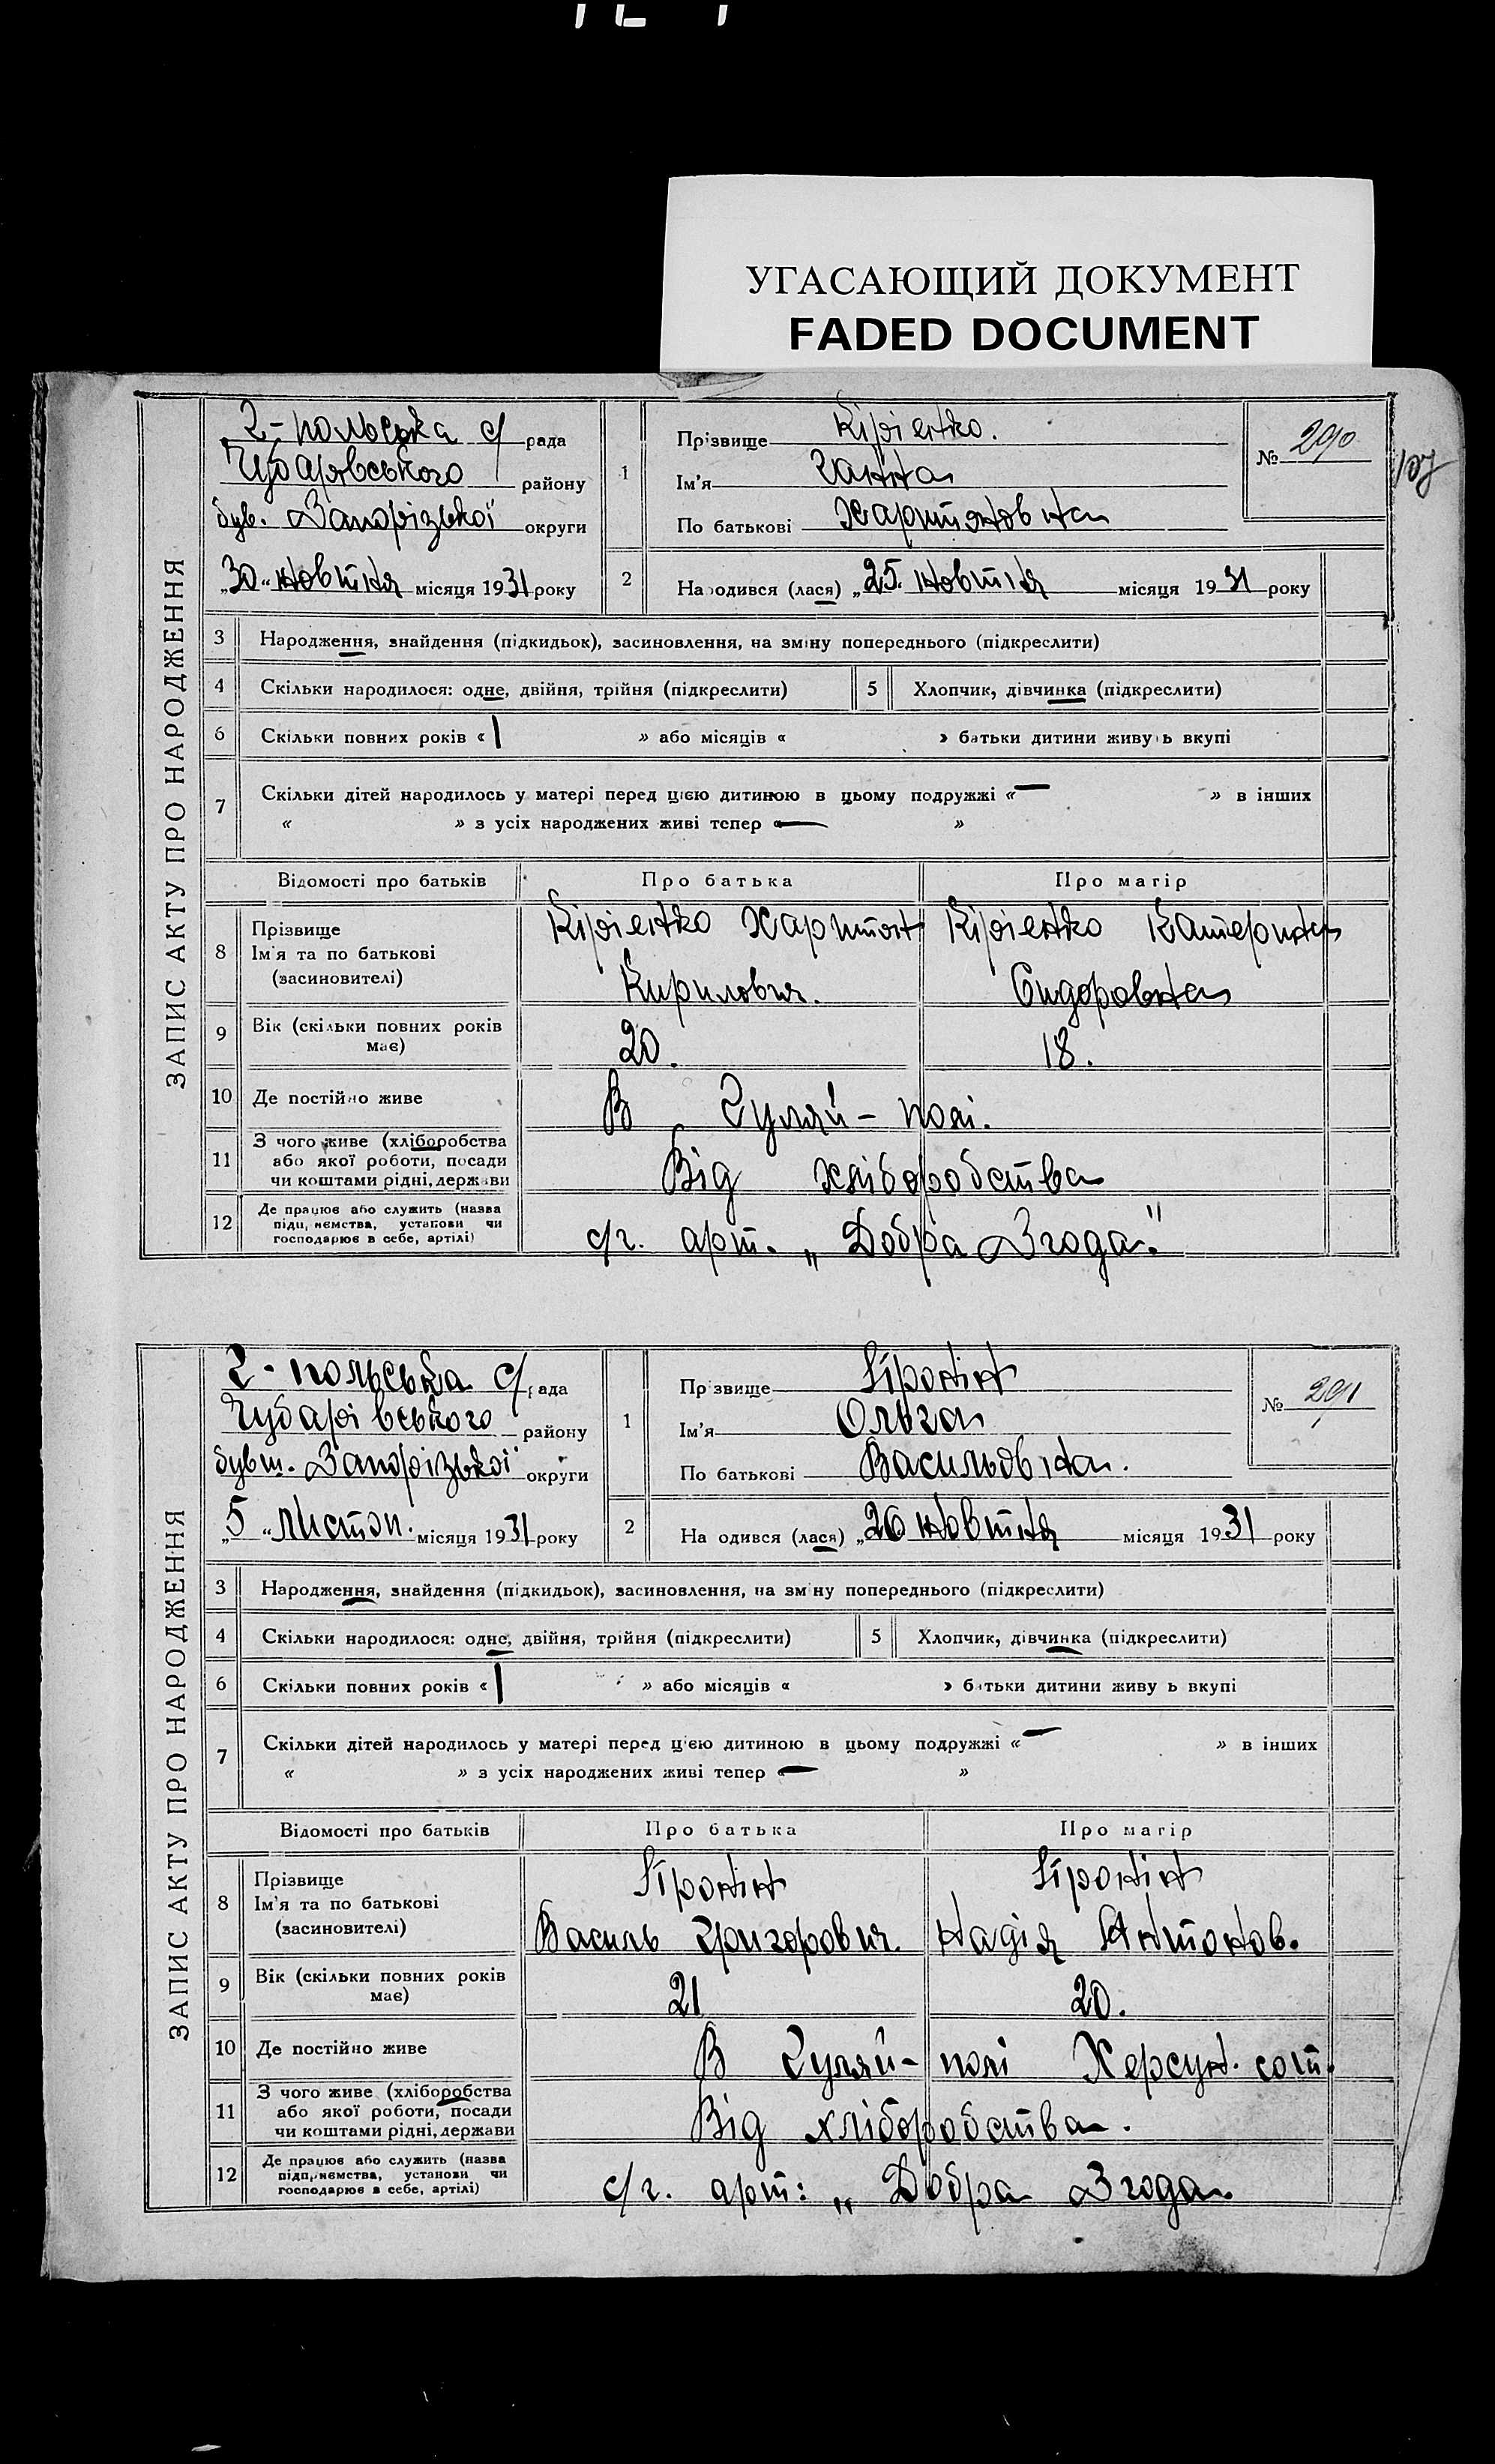 УГАСАЮЩИЙ ДОКУМЕНТ
FADED DOCUMENT
ЗАПИС АКТУ ПРО НАРОДЖЕННЯ
Г-польська с/рада
Чубарівського району
був. Запорізької округи
„30“ жовтня місяця 1931 року
1
Прізвище Кірієнко.
Ім'я Ганна
По батькові Харитоновна
№ 290
107
2
Народився (лася) „25. жовтня місяця 1931 року
3 Народження, знайдення (підкидьок), засиновлення, на зміну попереднього (підкреслити)
4 Скільки народилося: одне, двійня, трійня (підкреслити) 5 Хлопчик, дівчинка (підкреслити)
6 Скільки повних років « 1 » або місяців « » батьки дитини живуть вкупі
7 Скільки дітей народилось у матері перед цією дитиною в цьому подружжі « — » в інших
« » з усіх народжених живі тепер « — »
Відомості про батьків Про батька Про матір
8 Прізвище Ім'я та по батькові (засновителі)
Кірієнко Харитон Кирилович.
Кірієнко Катерина Сидоровна
9 Вік (скільки повних років має) 20. 18.
10 Де постійно живе В Гуляй-полі.
11 З чого живе (хліборобства або якої роботи, посади чи коштами рідні, держави Від хліборобства
12 Де працює або служить (назва підприємства, установи чи господарює в себе, артілі) с/г. арт. „Добра Згода."
ЗАПИС АКТУ ПРО НАРОДЖЕННЯ
Г-польська с/рада
Чубарівського району
бувш. Запорізької округи
„5“ листоп. місяця 1931 року
1
Прізвище
Ім'я Ольга
По батькові Васильовна.
№ 291
2
Народився (лася) „26 жовтня місяця 1931 року
3 Народження, знайдення (підкидьок), засиновлення, на зміну попереднього (підкреслити)
4 Скільки народилося: одне, двійня, трійня (підкреслити) 5 Хлопчик, дівчинка (підкреслити)
6 Скільки повних років « 1 » або місяців « » батьки дитини живуть вкупі
7 Скільки дітей народилось у матері перед цією дитиною в цьому подружжі « — » в інших
« » з усіх народжених живі тепер « — »
Відомості про батьків Про батька Про матір
8 Прізвище Ім'я та по батькові (засиновителі)
Василь Григорович.
Надія Антонов.
9 Вік (скільки повних років має) 21 20.
10 Де постійно живе В Гуляй-полі Херсун. сот.
11 З чого живе (хліборобства або якої роботи, посади чи коштами рідні, держави Від хліборобства.
12 Де працює або служить (назва підприємства, установи чи господарює в себе, артілі) с/г. арт: „Добра Згода.